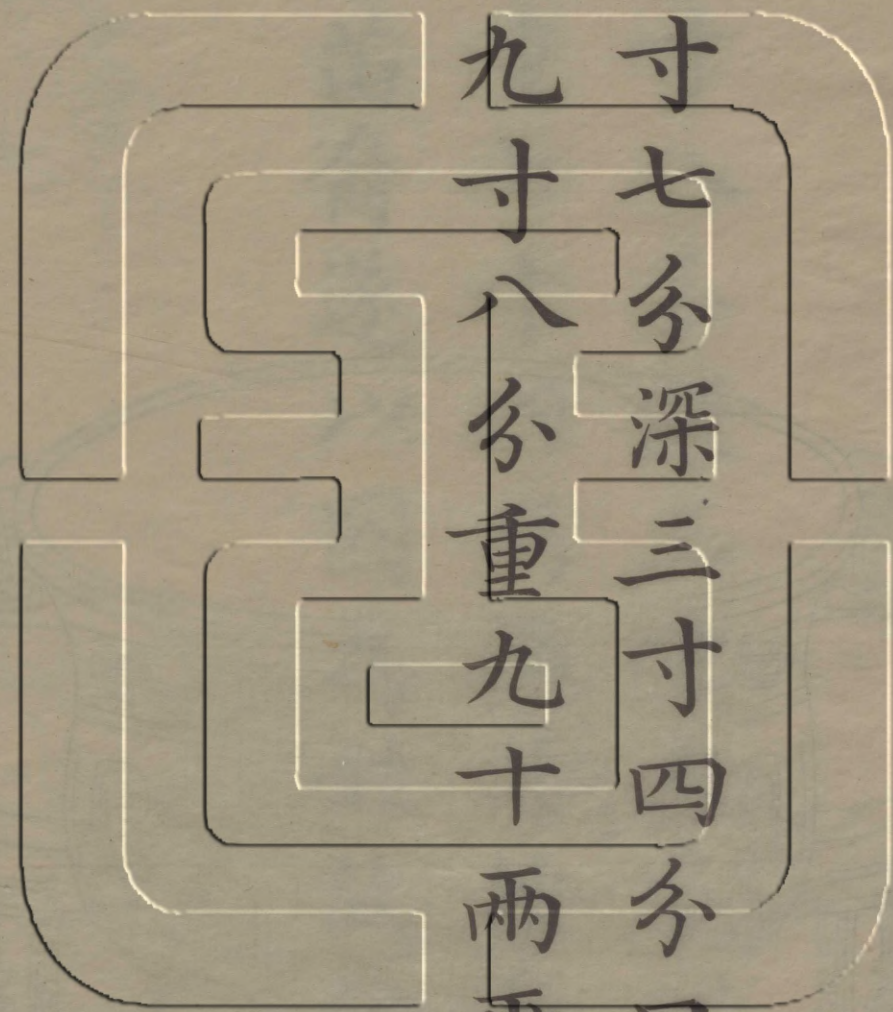 寸七分深三寸四分
九寸八分重九十兩